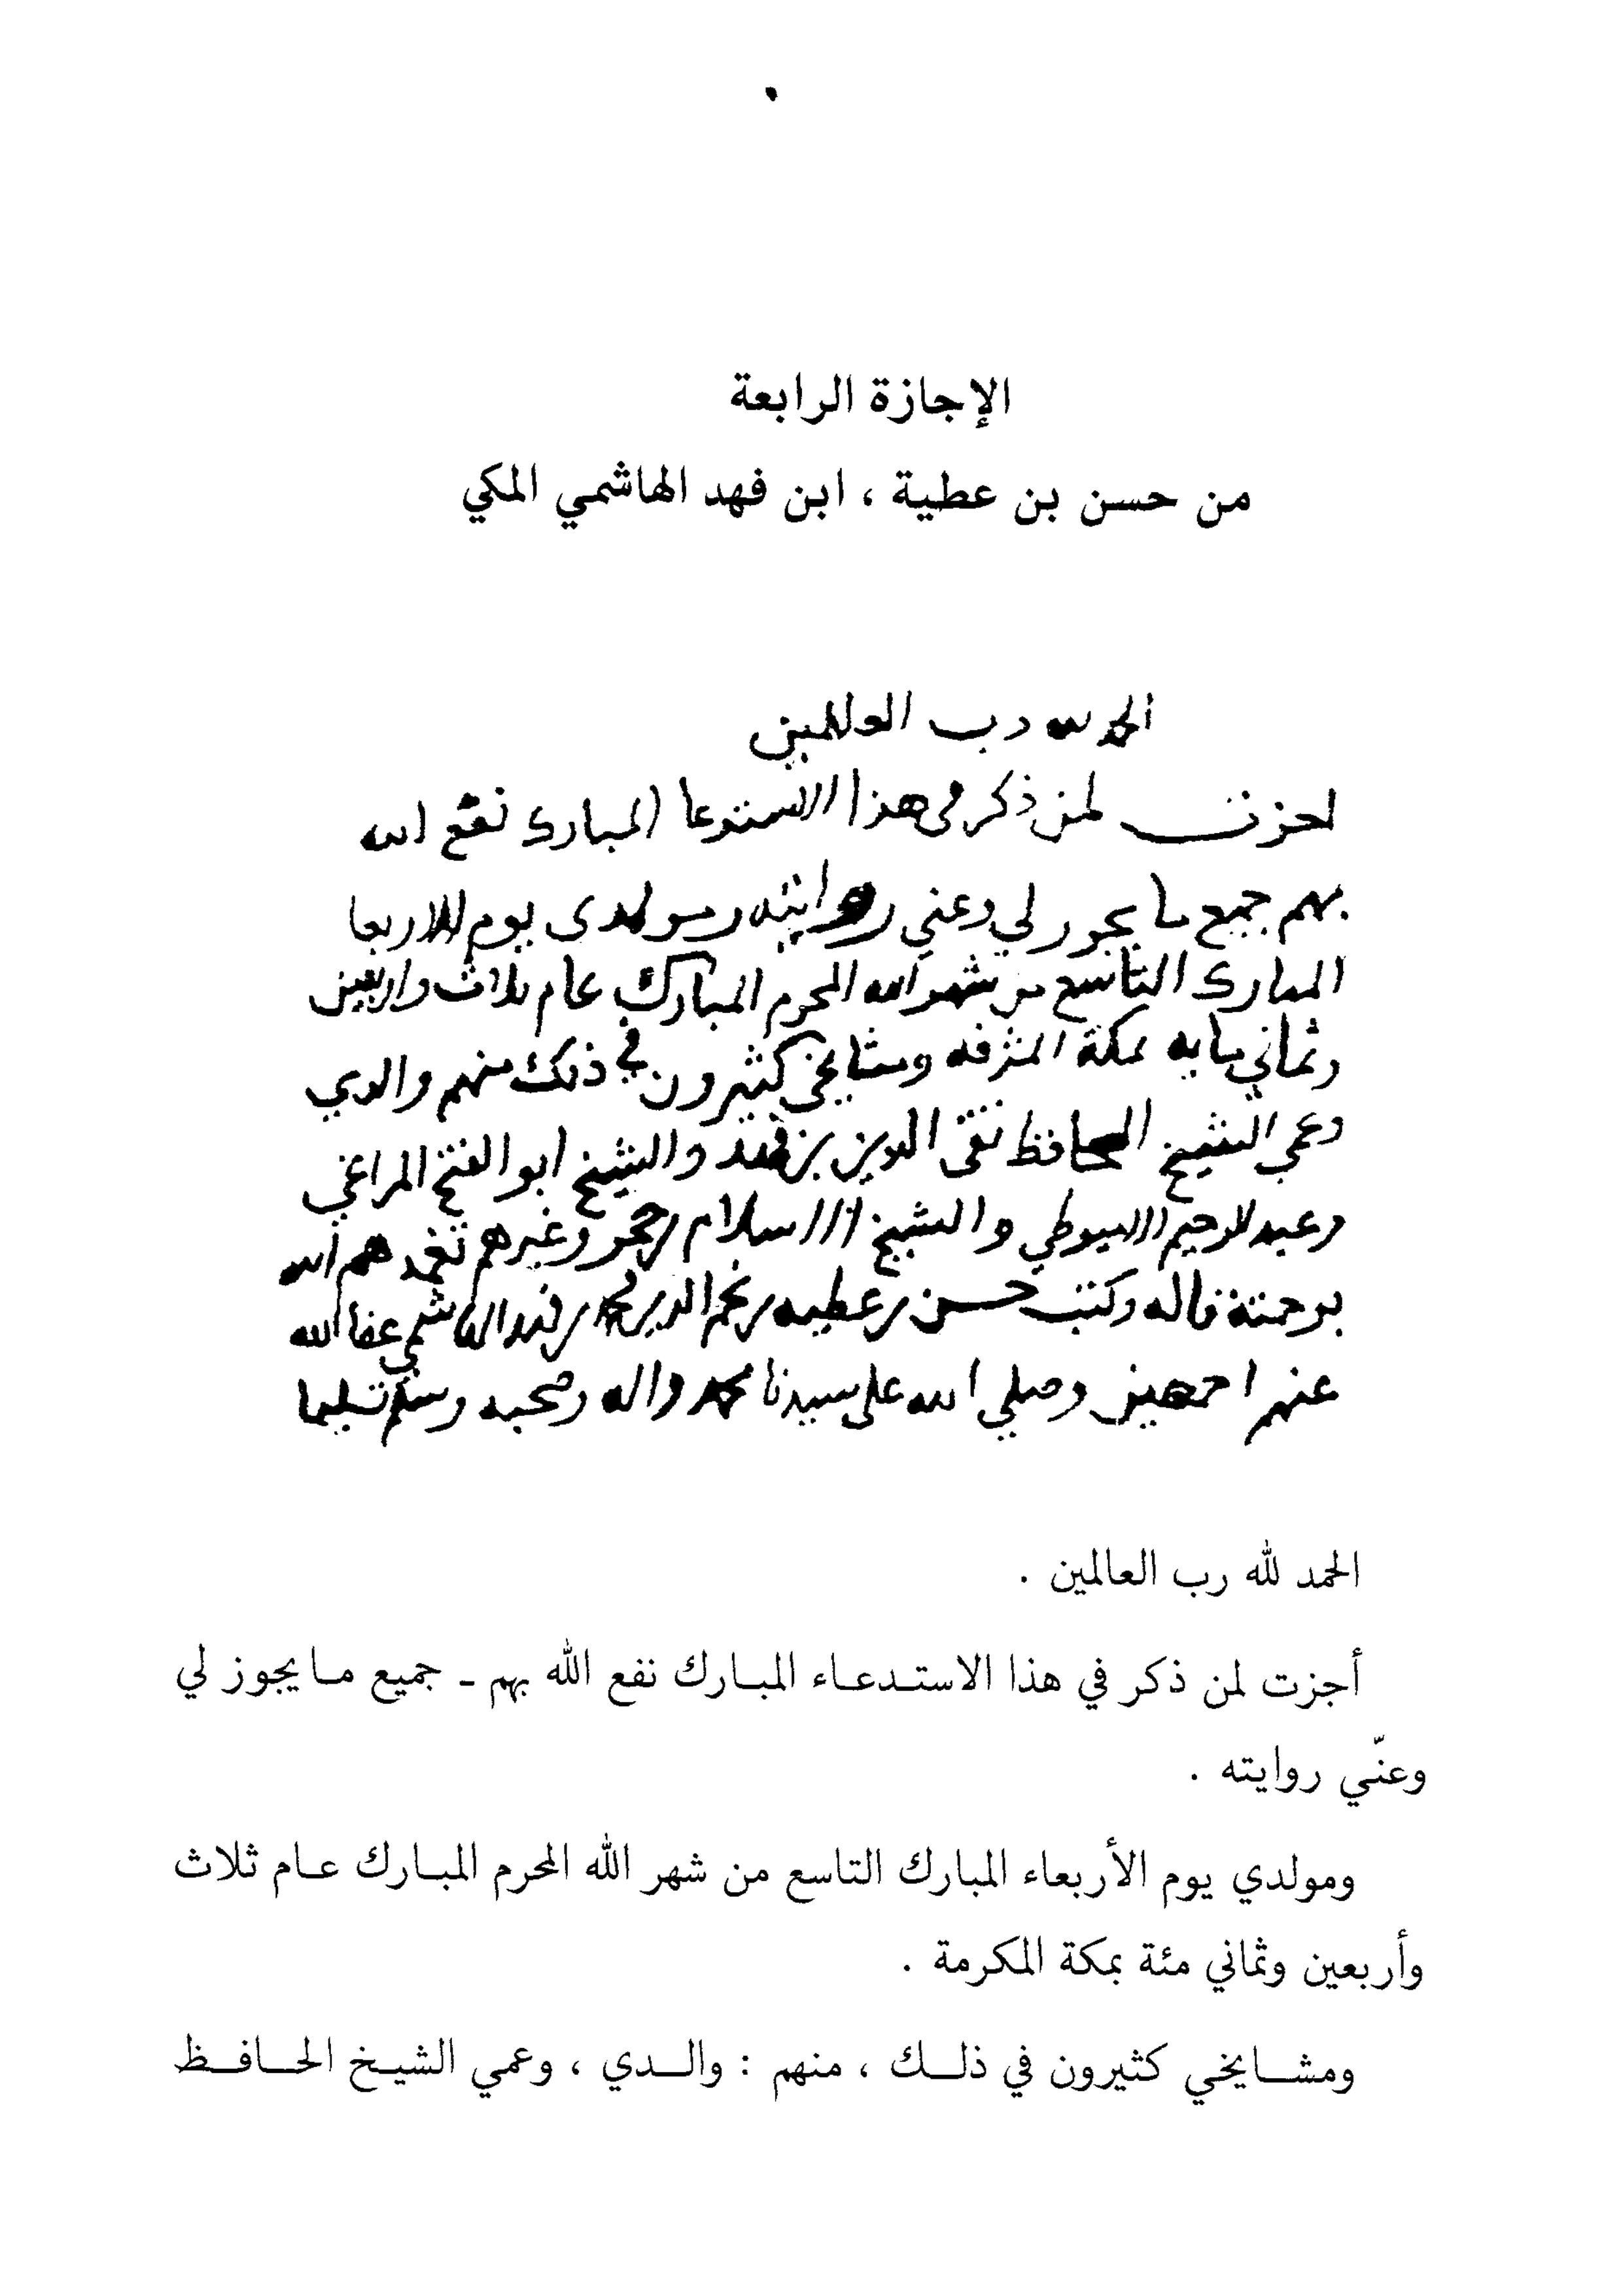 الإجازة الرابعة
من حسن بن عطية ، ابن فهد الهاشمي المكي
الحمد لله رب العالمين
احزت لمن ذكر في هذا الاستدعا المبارك نفع الله
بهم جميع ما يجوز لي وعني روايته ومولدى يوم الاربعا
المبارك التاسع من شهر الله المحرم المبارك عام ثلاث واربعين
وثماني مايه بمكة المشرفه ومشايخي كثيرون في ذلك منهم والدي
وعمي الشيخ الحافظ تقى الدين بن فهد والشيخ ابو الفتح المراغي
وعبد الرحيم الاسيوطي والشيخ الاسلام بن حجر وغيرهم تغمدهم الله
برحمته قاله وكتبه حسن بن عطيه بن نجم الدين محمد بن فهد الهاشمي عفا الله
عنهم اجمعين وصلي الله على سيدنا محمد واله وصحبه وسلم تسليما
الحمد لله رب العالمين .
أجزت لمن ذكر في هذا الاستدعاء المبارك نفع الله بهم - جميع ما يجوز لي
وعنّي روايته .
ومولدي يوم الأربعاء المبارك التاسع من شهر الله المحرم المبارك عام ثلاث
وأربعين وثماني مئة بمكة المكرمة .
ومشايخي كثيرون في ذلك ، منهم : والدي ، وعمي الشيخ الحافظ